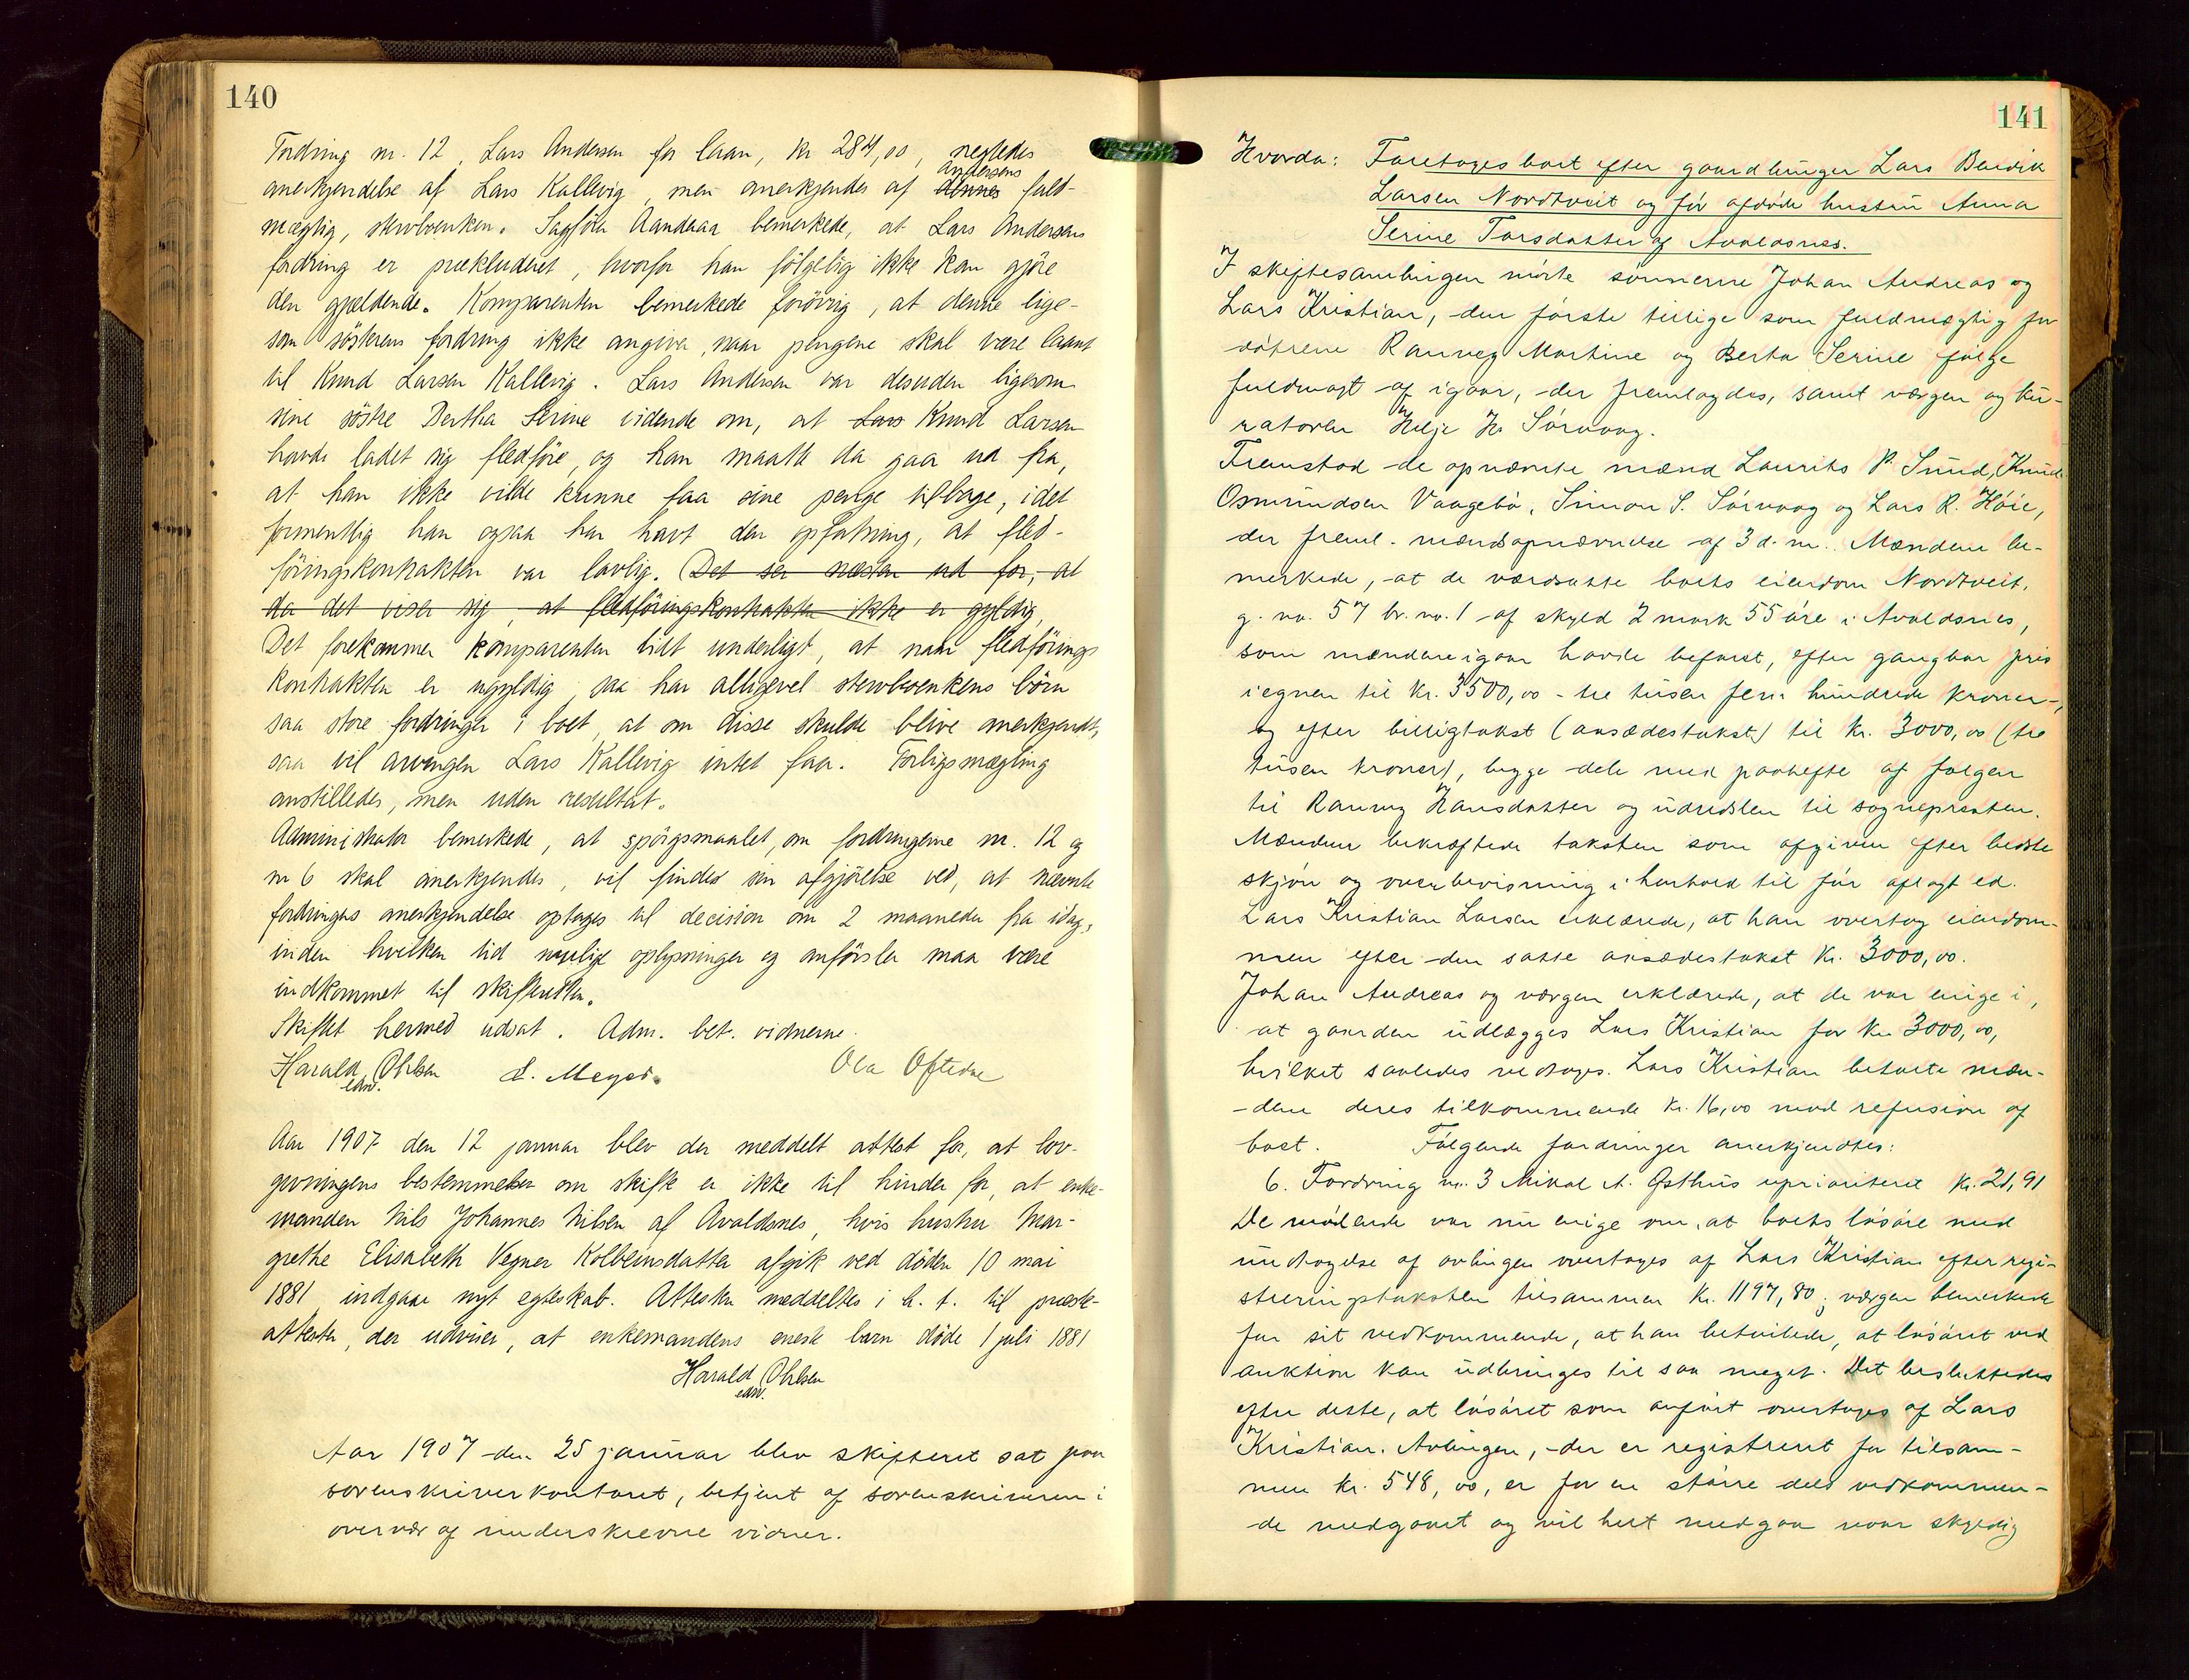 140
Fordring nr. 12, Lars Andersen for laan, kr 284,00, negtedes
anerkjendelse af Lars Kallevig, men anerkjendes af dennes Andersens fuld-
mægtig, stervboenken. Sagfører Aandaaa bemerkede, at Lars Andersens
fordring er prækluderet, hvorfor han følgelig ikke kan gjøre
den gjældende. Komparenten bemerkede forøvrig, at denne lige-
som søsterens fordring ikke angiver, naar pengene skal være laant
til Knud Larsen Kallevig. Lars Andersen var desuden ligesom
sine søstre Bertha Serine vidende om, at Lars Knud Larsen
havde ladet sig fledføre, og han maatte da gaa ud fra,
at han ikke vilde kunne faa sine penge tilbage, idet
formentlig han ogsaa har havt den opfatning, at fled-
føringskontrakten var lovlig. Det ser næsten ud for, at
da det viser sig, at fledføringskontrakten ikke er gyldig,
Det forekommer komparenten lidt underligt, at naar fledførings
kontrakten er ugyldig, saa har alligevel stervboenkens børn
saa store fordringer i boet, at om disse skulde blive anerkjendt,
saa vil arvingen Lars Kallevig intet faa. Forligsmægling
anstilledes, men uden resultat.
Administrator bemerkede, at spørgsmaalet, om fordringerne nr. 12 og
nr 6 skal anerkjendes, vil findes sin afgjørelse ved, at nævnte
fordringers anerkjendelse optages til decision om 2 maaneder fra idag,
inden hvilken tid mulige oplysninger og anførsler maa være
indkommet til skifteretten.
Skiftet hermed udsat. Adm. bet. vidnerne.
Harald Ohlsen edsv. L. Meyer. Ola Oftedne
Aar 1907 den 12 januar blev der meddelt attest for, at lov-
givningens bestemmelser om skifte er ikke til hinder for, at enke-
manden Nils Johannes Nilsen af Avaldsnes, hvis hustru Mar-
grethe Elisabeth Vegner Kolbeinsdatter afgik ved døden 10 mai
1881 indgaar nyt egteskab. Attesten meddeltes i h. t. til præste-
attester, der udviser, at enkemandens eneste barn døde 1 juli 1881
Harald Ohlsen
edsv.
Aar 1907 den 25 januar blev skifteret sat paa
sorenskriverkontoret, betjent af sorenskriveren i
overvær af underskrevne vidner.
141
Hvorda: Foretoges boet efter gaardbruger Lars Bendik
Larsen Nordtveit og før afdøde hustru Anna
Serine Tarsdatter af Avaldsnes.
I skiftesamlingen mørte sønnerne Johan Andreas og
Lars Kristian, den første tillige som fuldmægtig for
døtrene Ranveg Martine og Berta Serine følge
fuldmagt af igaar, der fremlagdes, samt vergen og ku-
ratoren Helje H. Sørvaag.
Fremstod de opnævnte mænd Laurits P. Sund, Knud
Osmundsen Vaagebø, Simon S. Sørvaag og Lars R. Høie,
der freml. mændsopnævnelse af 3 d. m. Mændene be-
merkede, at de værdsatte boets eiendom Nordtveit,
g. no. 57 br. no. 1 af skyld 2 mark 55 øre i Avaldsnes,
som mændene igaar havde befaret, efter gangbar pris
i egnen til kr. 3500,00 - tre tusen fem hundrede kroner -,
og efter billigtakst (aasædestakst) til kr. 3000,00 (tre
tusen kroner), begge dele med paahefte af følgen
til Ranveg Hansdatter og udredslen til sognepresten.
Mændene bekræftede taksten som afgiven efter bedste
skjøn og overbevisning i henhold til før aflagt ed.
Lars Kristian Larsen erklærede, at han overtog eiendom-
men efter den satte aasædestakst kr. 3000,00.
Johan Andreas og vergen erklærede, at de var enige i,
at gaarden udlægges Lars Kristian for kr 3000,00,
hvilket saaledes vedtoges. Lars Kristian betalte mæn-
dene deres tilkommende kr. 16,00 mod refusion af
boet. Følgende fordringer anerkjendtes:
6. Fordring nr. 3 Mikal A. Østhus uprioriteret kr. 21,91
De mødende var nu enige om, at boets løsøre med
undtagelse af avlingen overtages af Lars Kristian efter regi-
streringstaksten tilsammen kr. 1197,80; vergen bemerkede
for sit vedkommende, at han betvilede, at løsøret ved
auktion kan udbringes til saa meget. Det besluttedes
efter dette, at løsøret som anført overtages af Lars
Kristian. Avlingen, der er registreret for tilsam-
men kr. 548,00, er for en større dels vedkommen-
de medgaaet og vil helt medgaa naar skyldig